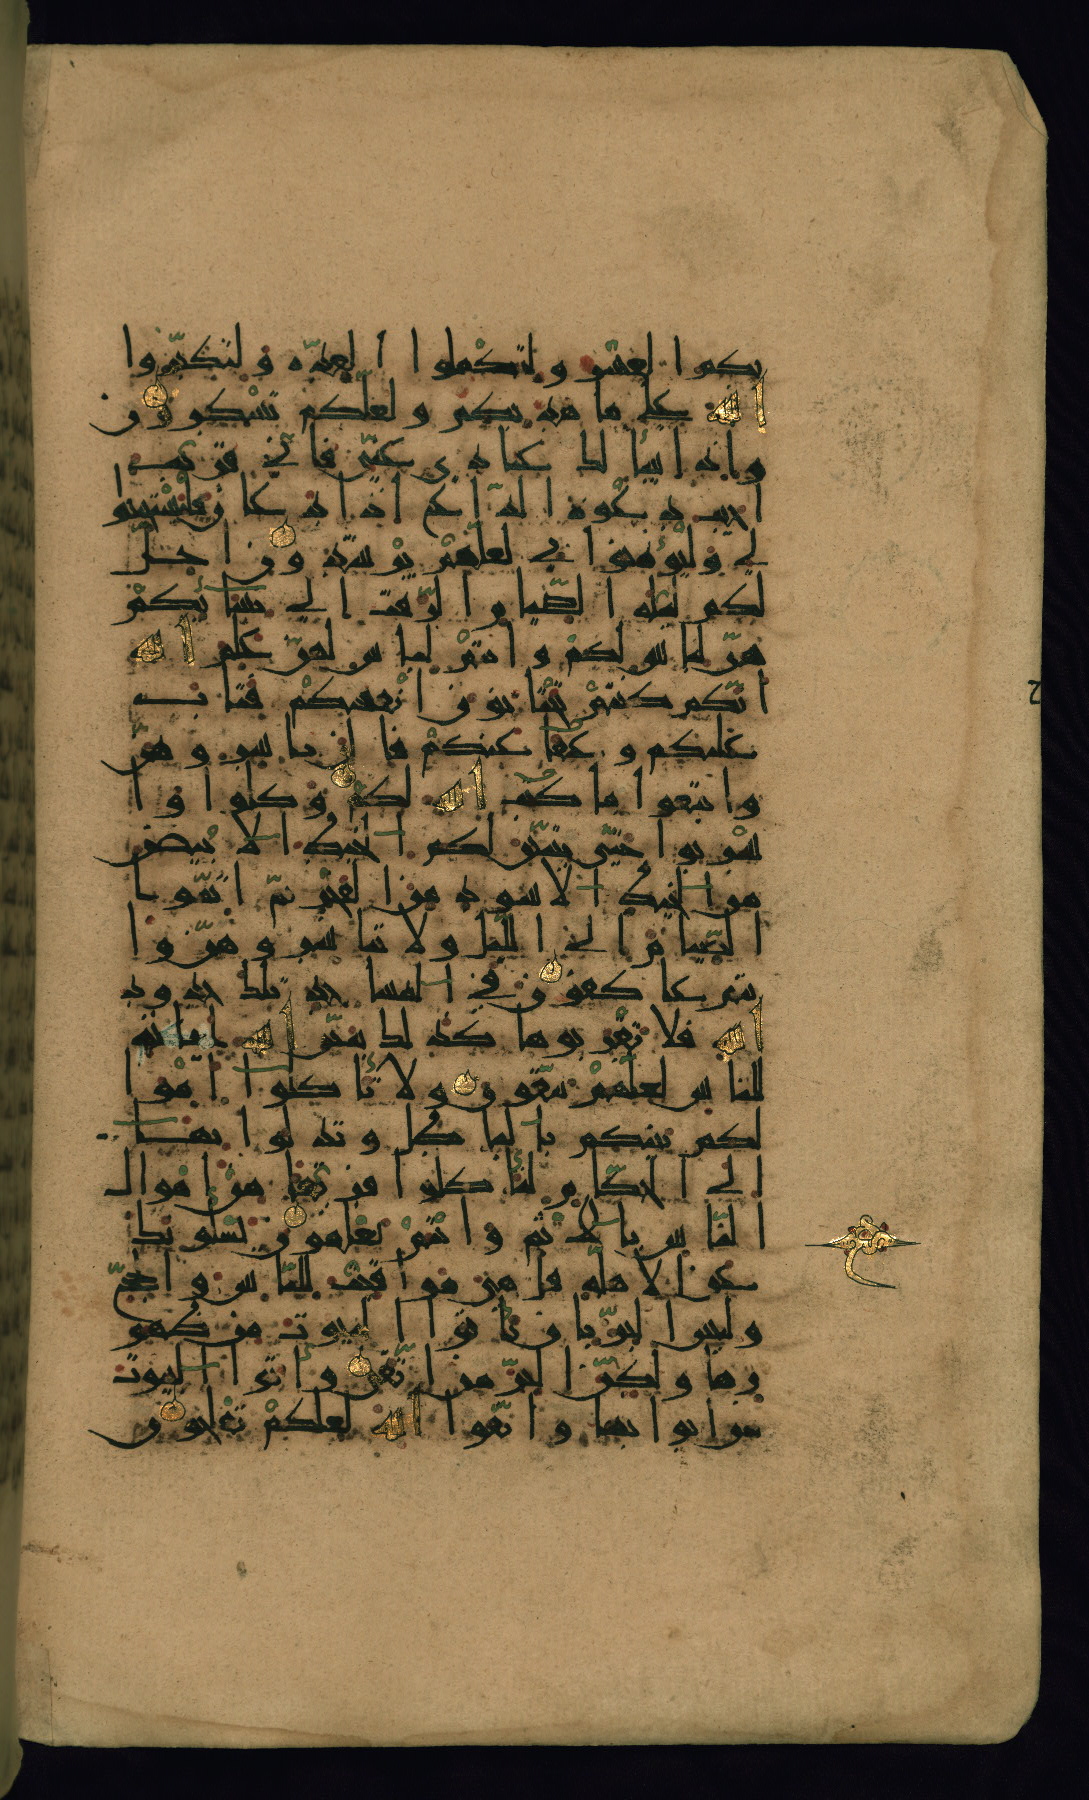 بكم العسر ولتكملوا العدة ولتكبروا
الله على ما هديكم ولعلكم تشكرون
واذا سالك عبادي عني فاني قريب
اجيب دعوة الداع اذا دعان فليستجيبوا
لي وليؤمنوا بي لعلهم يرشدون احل
لكم ليلة الصيام الرفث الى نسائكم
هن لباس لكم وانتم لباس لهن علم الله
انكم كنتم تختانون انفسكم فتاب
عليكم وعفا عنكم فالن باشروهن
وابتغوا ما كتب الله لكم وكلوا وا
شربوا حتى يتبين لكم الخيط الابيض
من الخيط الاسود من الفجر ثم اتموا
الصيام الى الليل ولا تباشروهن وا
نتم عاكفون في المساجد تلك حدود
الله فلا تقربوها كذلك يبين الله اياته
للناس لعلهم يتقون ولا تاكلوا اموا
لكم بينكم بالباطل وتدلوا بها
الى الحكام لتاكلوا فريقا من اموال
الناس بالاثم وانتم تعلمون يسلونك
عن الاهلة قل هي مواقيت للناس والحج
وليس البر بان تاتوا البيوت من ظهو
رها ولكن البر من اتقى واتوا البيوت
من ابوابها واتقوا الله لعلكم تفلحون